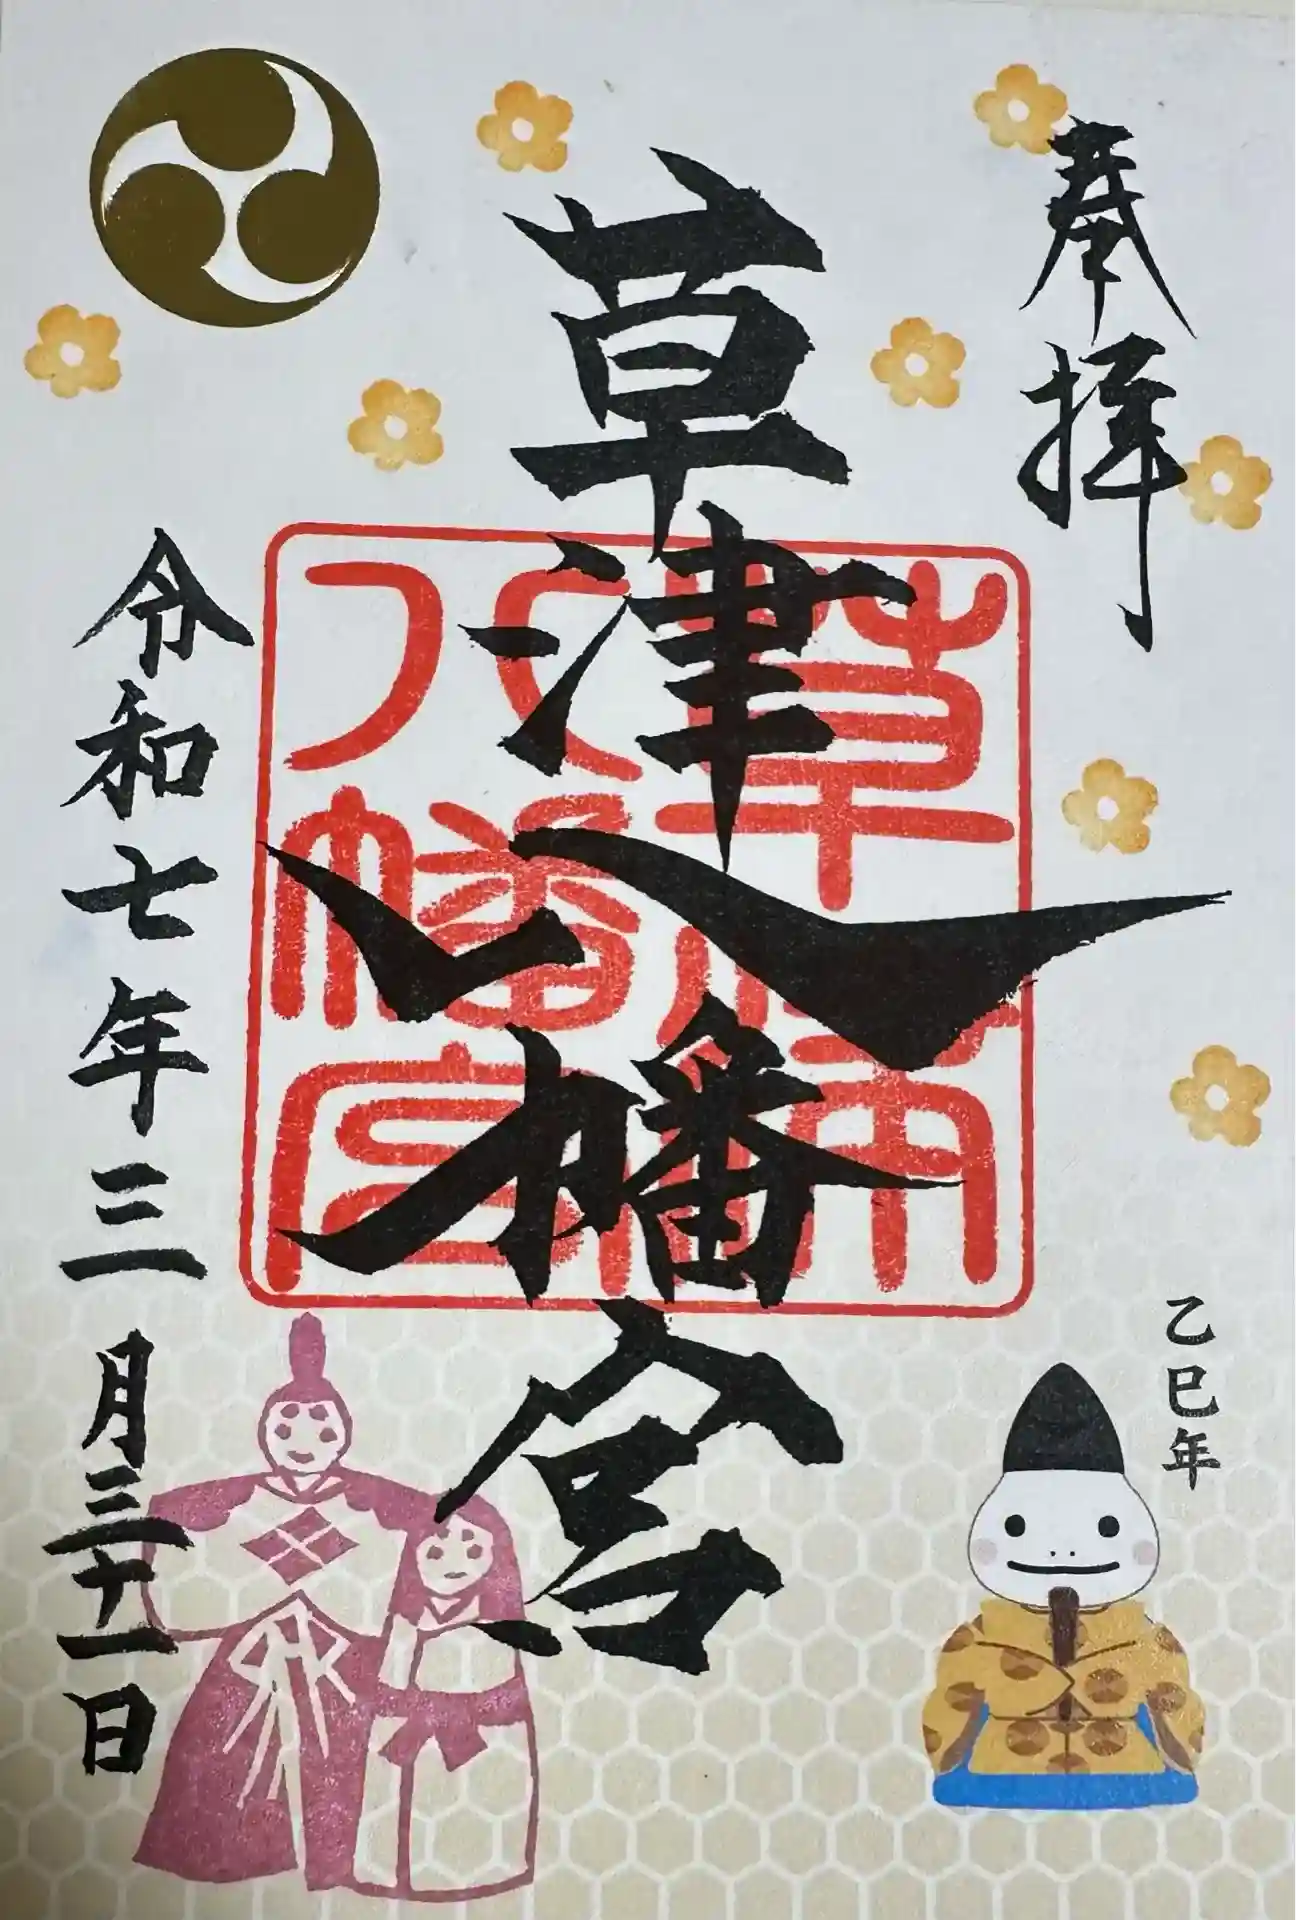 奉拝
乙巳年
草津八幡宮
草津八幡宮
令和七年三月三十一日